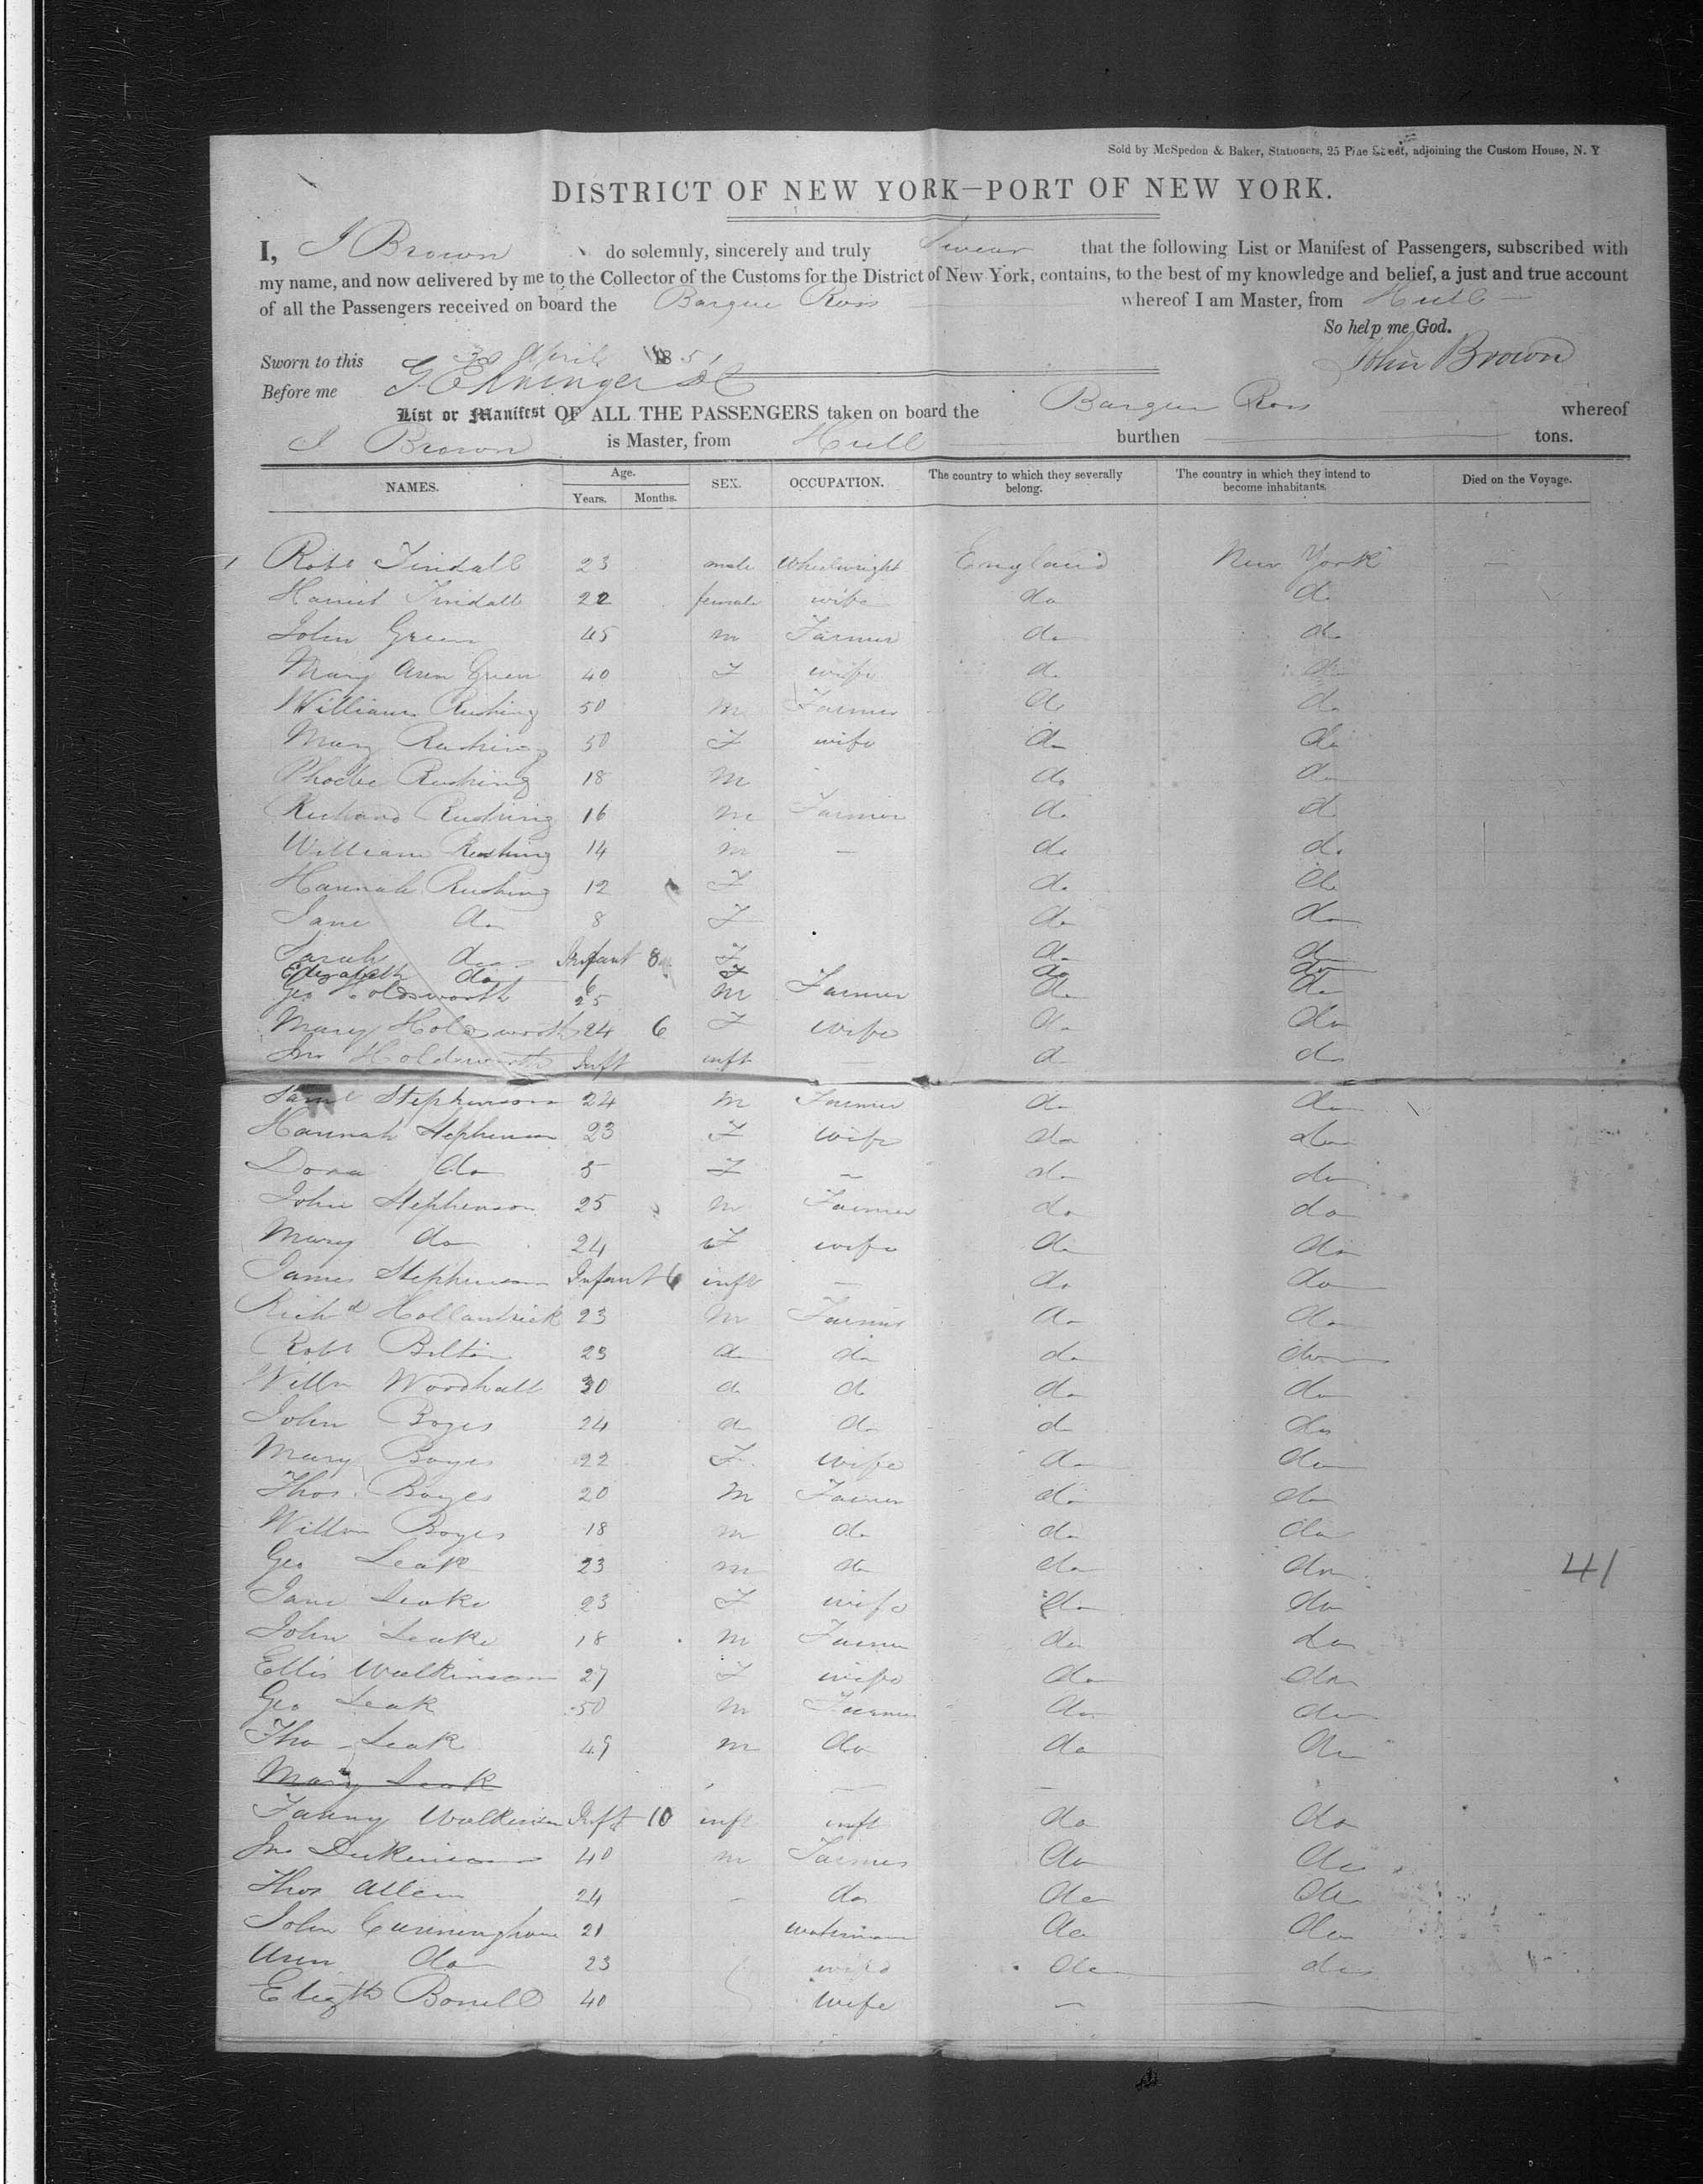 Sold by McSpedon & Baker, Stationers, 25 Pine Street, adjoining the Custom House, N. Y
DISTRICT OF NEW YORK—PORT OF NEW YORK.
I, J Brown do solemnly, sincerely and truly Swear that the following List or Manifest of Passengers, subscribed with
my name, and now delivered by me to the Collector of the Customs for the District of New York, contains, to the best of my knowledge and belief, a just and true account
of all the Passengers received on board the Barque Ross whereof I am Master, from Hull
So help me God.
Sworn to this 30 April 1851 John Brown
Before me
List or Manifest OF ALL THE PASSENGERS taken on board the Barque Ross whereof
J Brown is Master, from Hull burthen tons.
NAMES. Age. Years. Months. SEX. OCCUPATION. The country to which they severally belong. The country in which they intend to become inhabitants. Died on the Voyage.
1 Robt Tindall 23 male Wheelwright England New York —
Harriet Tindall 22 female wife do do
John Green 45 m Farmer do do
Mary Ann Green 40 F wife do do
William Rushing 50 m Farmer do do
Mary Rushing 50 F wife do do
Phoebe Rushing 18 m do do
Richard Rushing 16 m Farmer do do
William Rushing 14 m — do do
Hannah Rushing 12 F do do
Jane do 8 F do do
Sarah do Infant 8 F do do
Elizabeth do 6 F do do
Geo Holdsworth 25 m Farmer do do
Mary Holdsworth 24 6 F wife do do
Jno Holdsworth Inft inft — do do
Saml Stephenson 24 m Farmer do do
Hannah Stephenson 23 F wife do do
Dora do 5 F — do do
John Stephenson 25 m Farmer do do
Mary do 24 F wife do do
James Stephenson Infant 6 inft — do do
Richd 23 m Farmer do do
Robt Bilton 23 do do do do
Willm Woodhall 30 do do do do
John Boyes 24 do do do do
Mary Boyes 22 F wife do do
Thos. Boyes 20 m Farmer do do
Willm Boyes 18 m do do do
Geo Leak 23 m do do do 41
Jane Leake 23 F wife do do
John Leake 18 m Farmer do do
Ellis Wilkinson 27 F wife do do
Geo Leak 50 m Farmer do do
Tho Leak 49 m do do do
Mary Leak — —
Fanny Inft 10 inft inft do do
Jno Dickinson 40 m Farmer do do
Thos Allen 24 - do do do
John Cunningham 21 waterman do do
Ann do 23 wife do do
Elizth 40 wife —